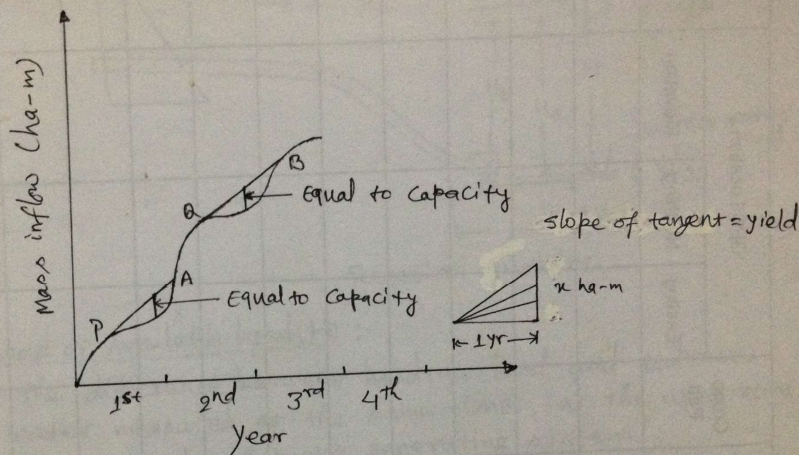 Mass inflow (ha-m)
B
Equal to capacity
Q
slope of tangent = yield
A
x ha-m
Equal to capacity
P
1yr
1st 2nd 3rd 4th
Year